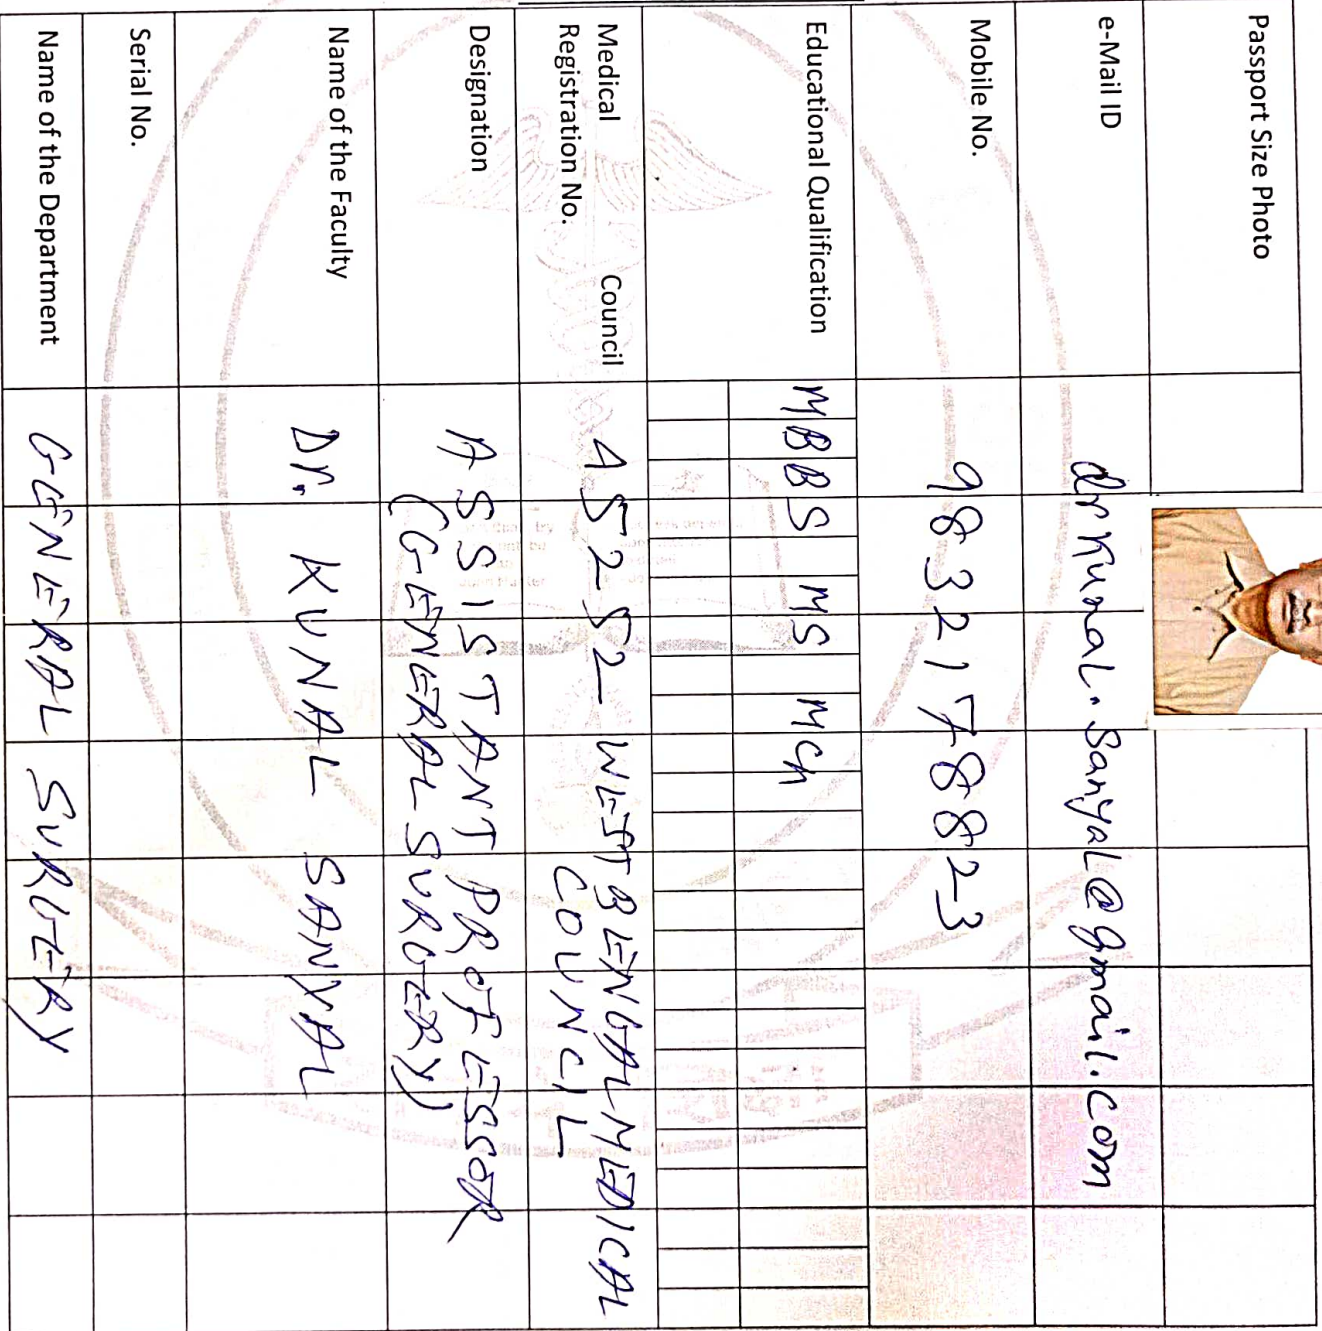 Name of the Department GENERAL SURGERY
Serial No.
Name of the Faculty Dr. KUNAL SANYAL
Designation ASSISTANT PROFESSOR
(GENERAL SURGERY)
Medical Council 45252 WEST BENGAL MEDICAL
Registration No. COUNCIL
Educational Qualification MBBS MS Mch
Mobile No. 9832178823
e-Mail ID drkunal.sanyal@gmail.com
Passport Size Photo